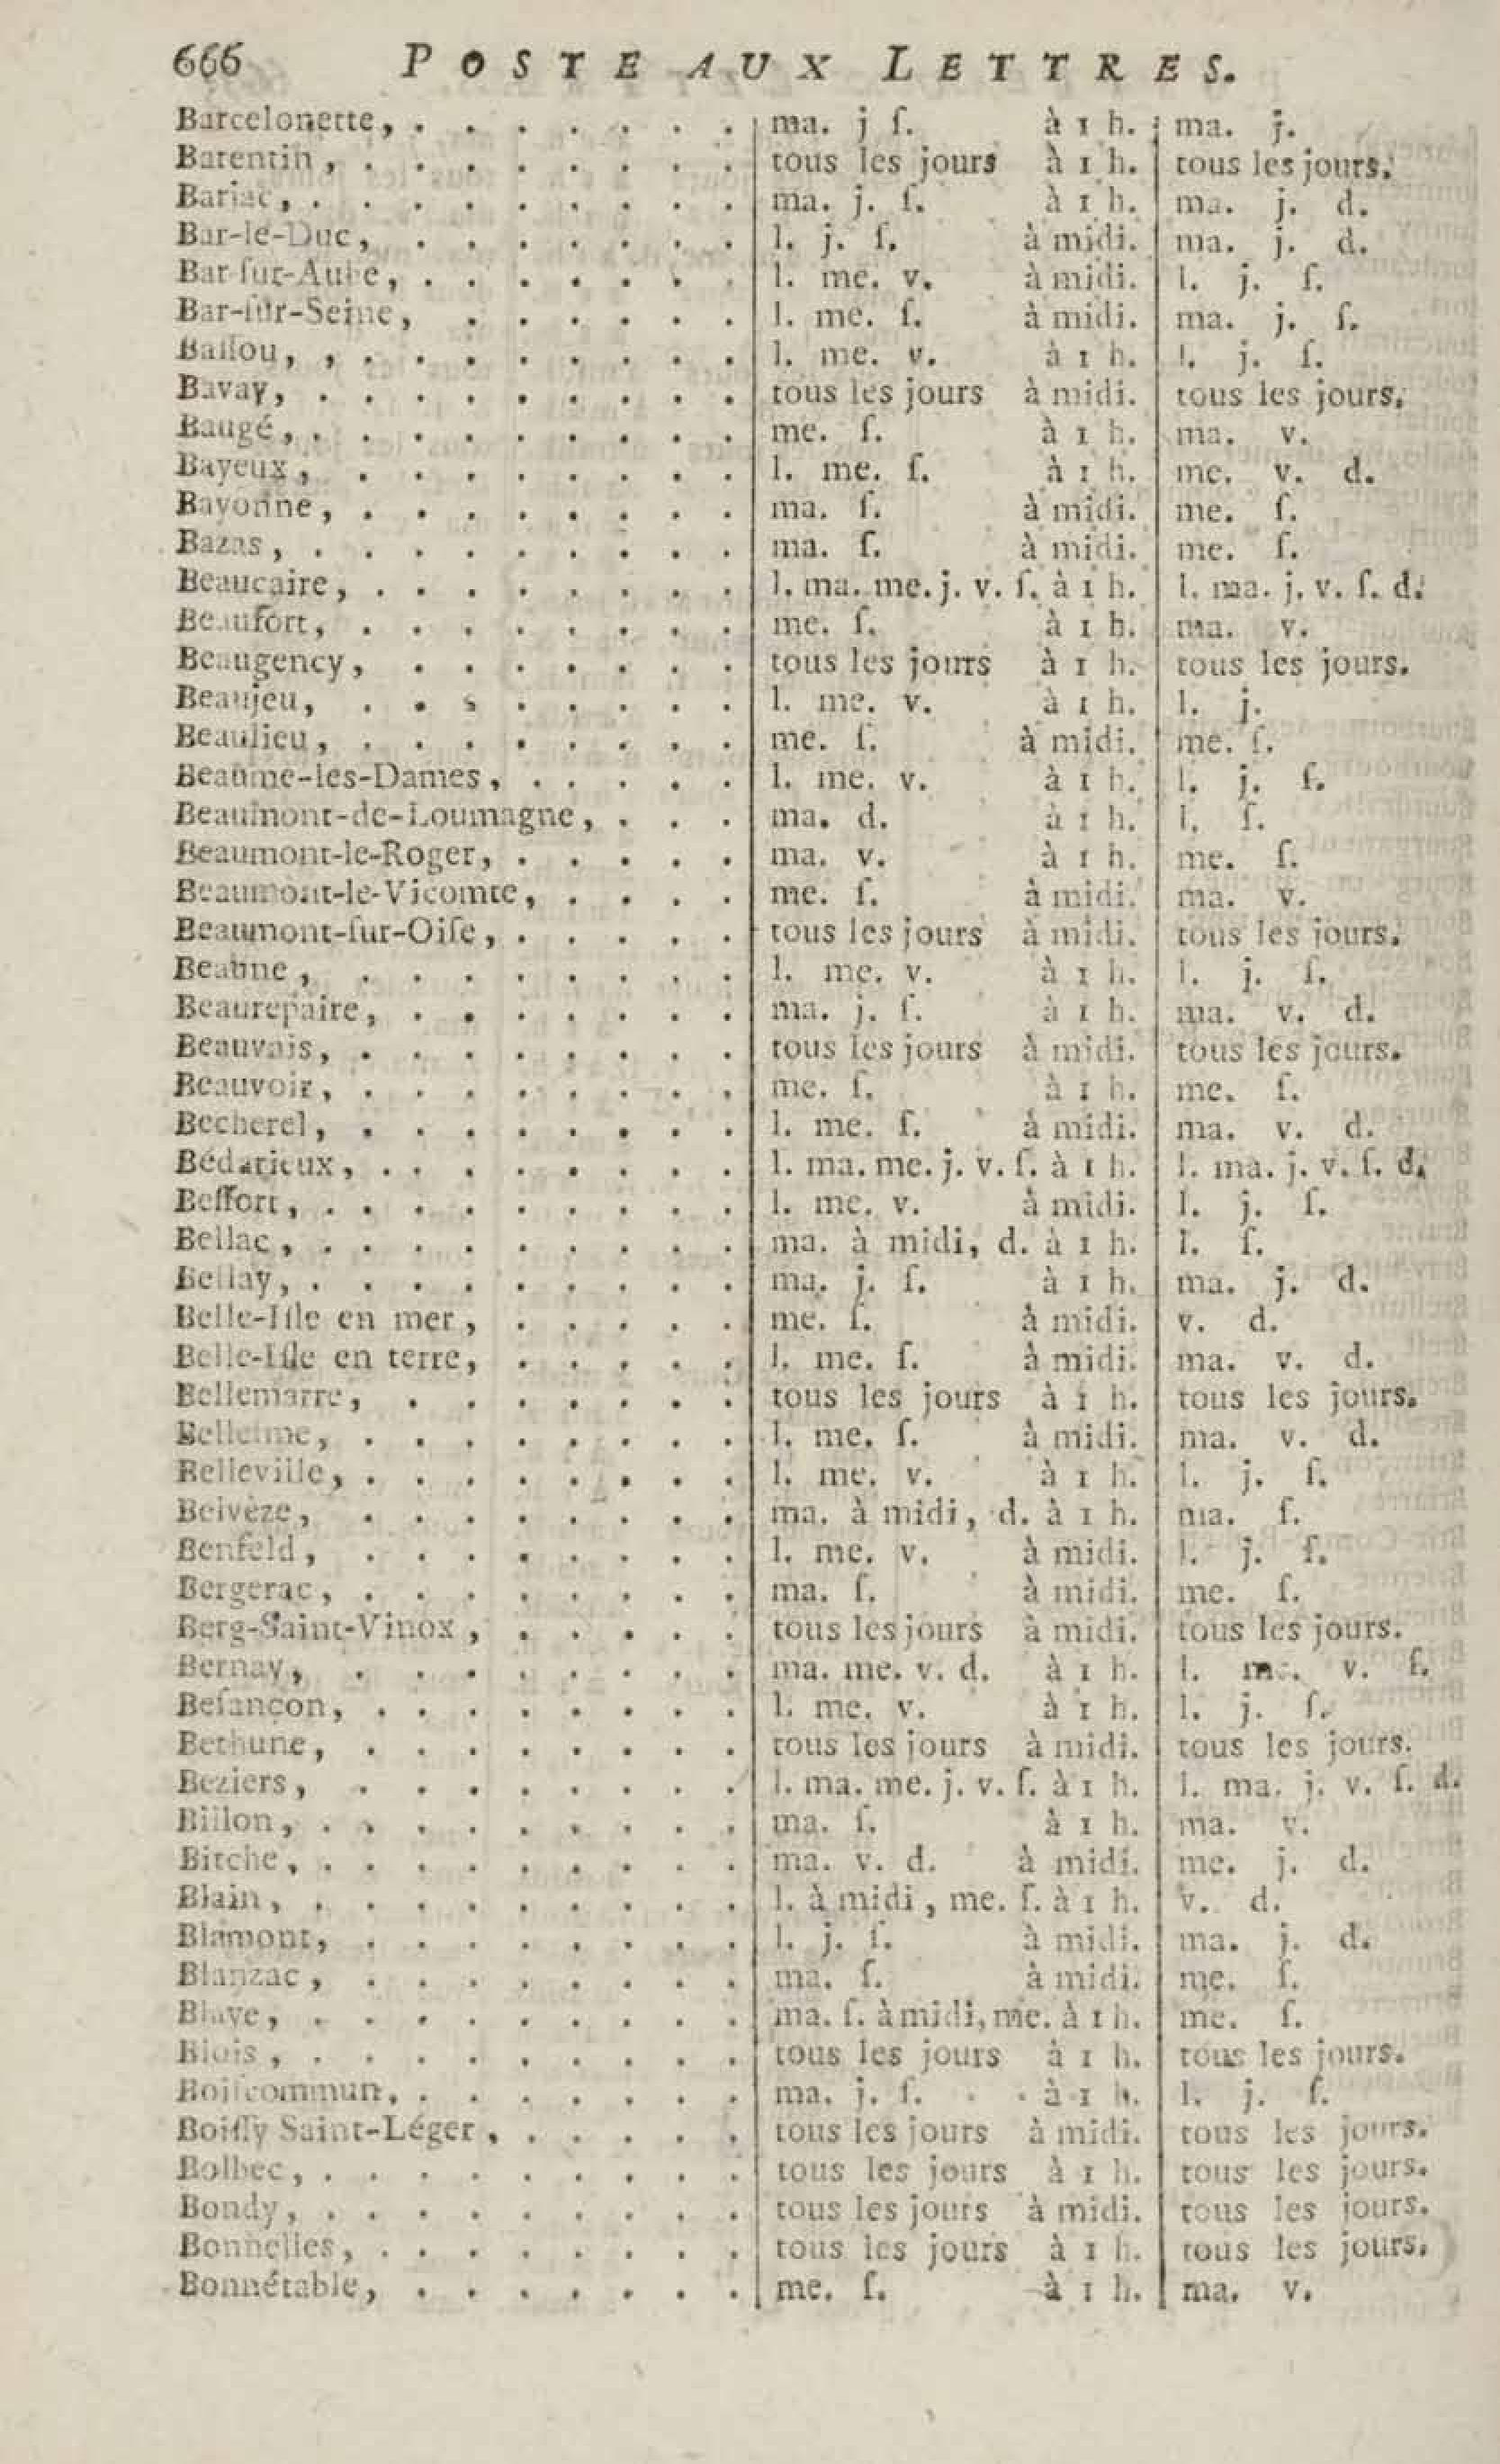 666 POSTE AUX LETTRES.
Barcelonette, . . . . . . . ma. j ſ. à 1 h. ma. j.
Barentin, . . . . . . . . tous les jours à 1 h. tous les jours.
Barjac, . . . . . . . . . ma. j. ſ. à 1 h. ma. j. d.
Bar-le-Duc, . . . . . . . l. j. ſ. à midi. ma. j. d.
Bar ſur-Aube, . . . . . . . l. me. v. à midi. l. j. ſ.
Bar-ſur-Seine, . . . . . . l. me. ſ. à midi. ma. j. ſ.
Ballou, , . . . . . . . . l. me. v. à 1 h. l. j. ſ.
Bavay, . . . . . . . . . tous les jours à midi. tous les jours.
Baugé, . . . . . . . . . me. ſ. à 1 h. ma. v.
Bayeux, . . . . . . . . l. me. ſ. à 1 h. me. v. d.
Bayonne, . . . . . . . . ma. ſ. à midi. me. ſ.
Bazas, . . . . . . . . . ma. ſ. à midi. me. ſ.
Beaucaire, . . . . . . . . l. ma. me. j. v. ſ. à 1 h. l. ma. j. v. ſ. d.
Beaufort, . . . . . . . . me. ſ. à 1 h. ma. v.
Beaugency, . . . . . . . tous les jours à 1 h. tous les jours.
Beaujeu, . . . . . . . . l. me. v. à 1 h. l. j.
Beaulieu, . . . . . . . . me. ſ. à midi. me. ſ.
Beaume-les-Dames, . . . . . l. me. v. à 1 h. l. j. ſ.
Beaumont-de-Loumagne, . . . ma. d. à 1 h. l. ſ.
Beaumont-le-Roger, . . . . . ma. v. à 1 h. me. ſ.
Beaumont-le-Vicomte, . . . . me. ſ. à midi. ma. v.
Beaumont-ſur-Oiſe, . . . . . tous les jours à midi. tous les jours.
Beaune, . . . . . . . . l. me. v. à 1 h. l. j. ſ.
Beaurepaire, . . . . . . . ma. j. ſ. à 1 h. ma. v. d.
Beauvais, . . . . . . . . tous les jours à midi. tous les jours.
Beauvoir, . . . . . . . . me. ſ. à 1 h. me. ſ.
Becherel, . . . . . . . . l. me. ſ. à midi. ma. v. d.
Bédarieux, . . . . . . . . l. ma. me. j. v. ſ. à 1 h. l. ma. j. v. ſ. d.
Beffort, . . . . . . . . . l. me. v. à midi. l. j. ſ.
Bellac, . . . . . . . . . ma. à midi, d. à 1 h. l. ſ.
Bellay, . . . . . . . . . ma. j. ſ. à 1 h. ma. j. d.
Belle-Iſle en mer, . . . . . me. ſ. à midi. v. d.
Belle-Iſle en terre, . . . . . l. me. ſ. à midi. ma. v. d.
Bellemarre, . . . . . . . tous les jours à 1 h. tous les jours.
Bellesme, . . . . . . . . l. me. ſ. à midi. ma. v. d.
Belleville, . . . . . . . . l. me. v. à 1 h. l. j. ſ.
Belvèze, . . . . . . . . ma. à midi, d. à 1 h. ma. ſ.
Benfeld, . . . . . . . . l. me. v. à midi. l. j. ſ.
Bergerac, . . . . . . . . ma. ſ. à midi. me. ſ.
Berg-Saint-Vinox, . . . . . tous les jours à midi. tous les jours.
Bernay, . . . . . . . . ma. me. v. d. à 1 h. l. me. v. ſ.
Beſançon, . . . . . . . . l. me. v. à 1 h. l. j. ſ.
Bethune, . . . . . . . . tous les jours à midi. tous les jours.
Beziers, . . . . . . . . l. ma. me. j. v. ſ. à 1 h. l. ma. j. v. ſ. d.
Billon, . . . . . . . . . ma. ſ. à 1 h. ma. v.
Bitche, . . . . . . . . . ma. v. d. à midi. me. j. d.
Blain, . . . . . . . . . l. à midi, me. ſ. à 1 h. v. d.
Blamont, . . . . . . . . l. j. ſ. à midi. ma. j. d.
Blanzac, . . . . . . . . ma. ſ. à midi. me. ſ.
Blaye, . . . . . . . . . ma. ſ. à midi, me. à 1 h. me. ſ.
Blois, . . . . . . . . . tous les jours à 1 h. tous les jours.
Boiſcommun, . . . . . . . ma. j. ſ. à 1 h. l. j. ſ.
Boiſſy Saint-Léger, . . . . . tous les jours à midi. tous les jours.
Bolbec, . . . . . . . . . tous les jours à 1 h. tous les jours.
Bondy, . . . . . . . . . tous les jours à midi. tous les jours.
Bonnelles, . . . . . . . . tous les jours à 1 h. tous les jours.
Bonnétable, . . . . . . . me. ſ. à 1 h. ma. v.